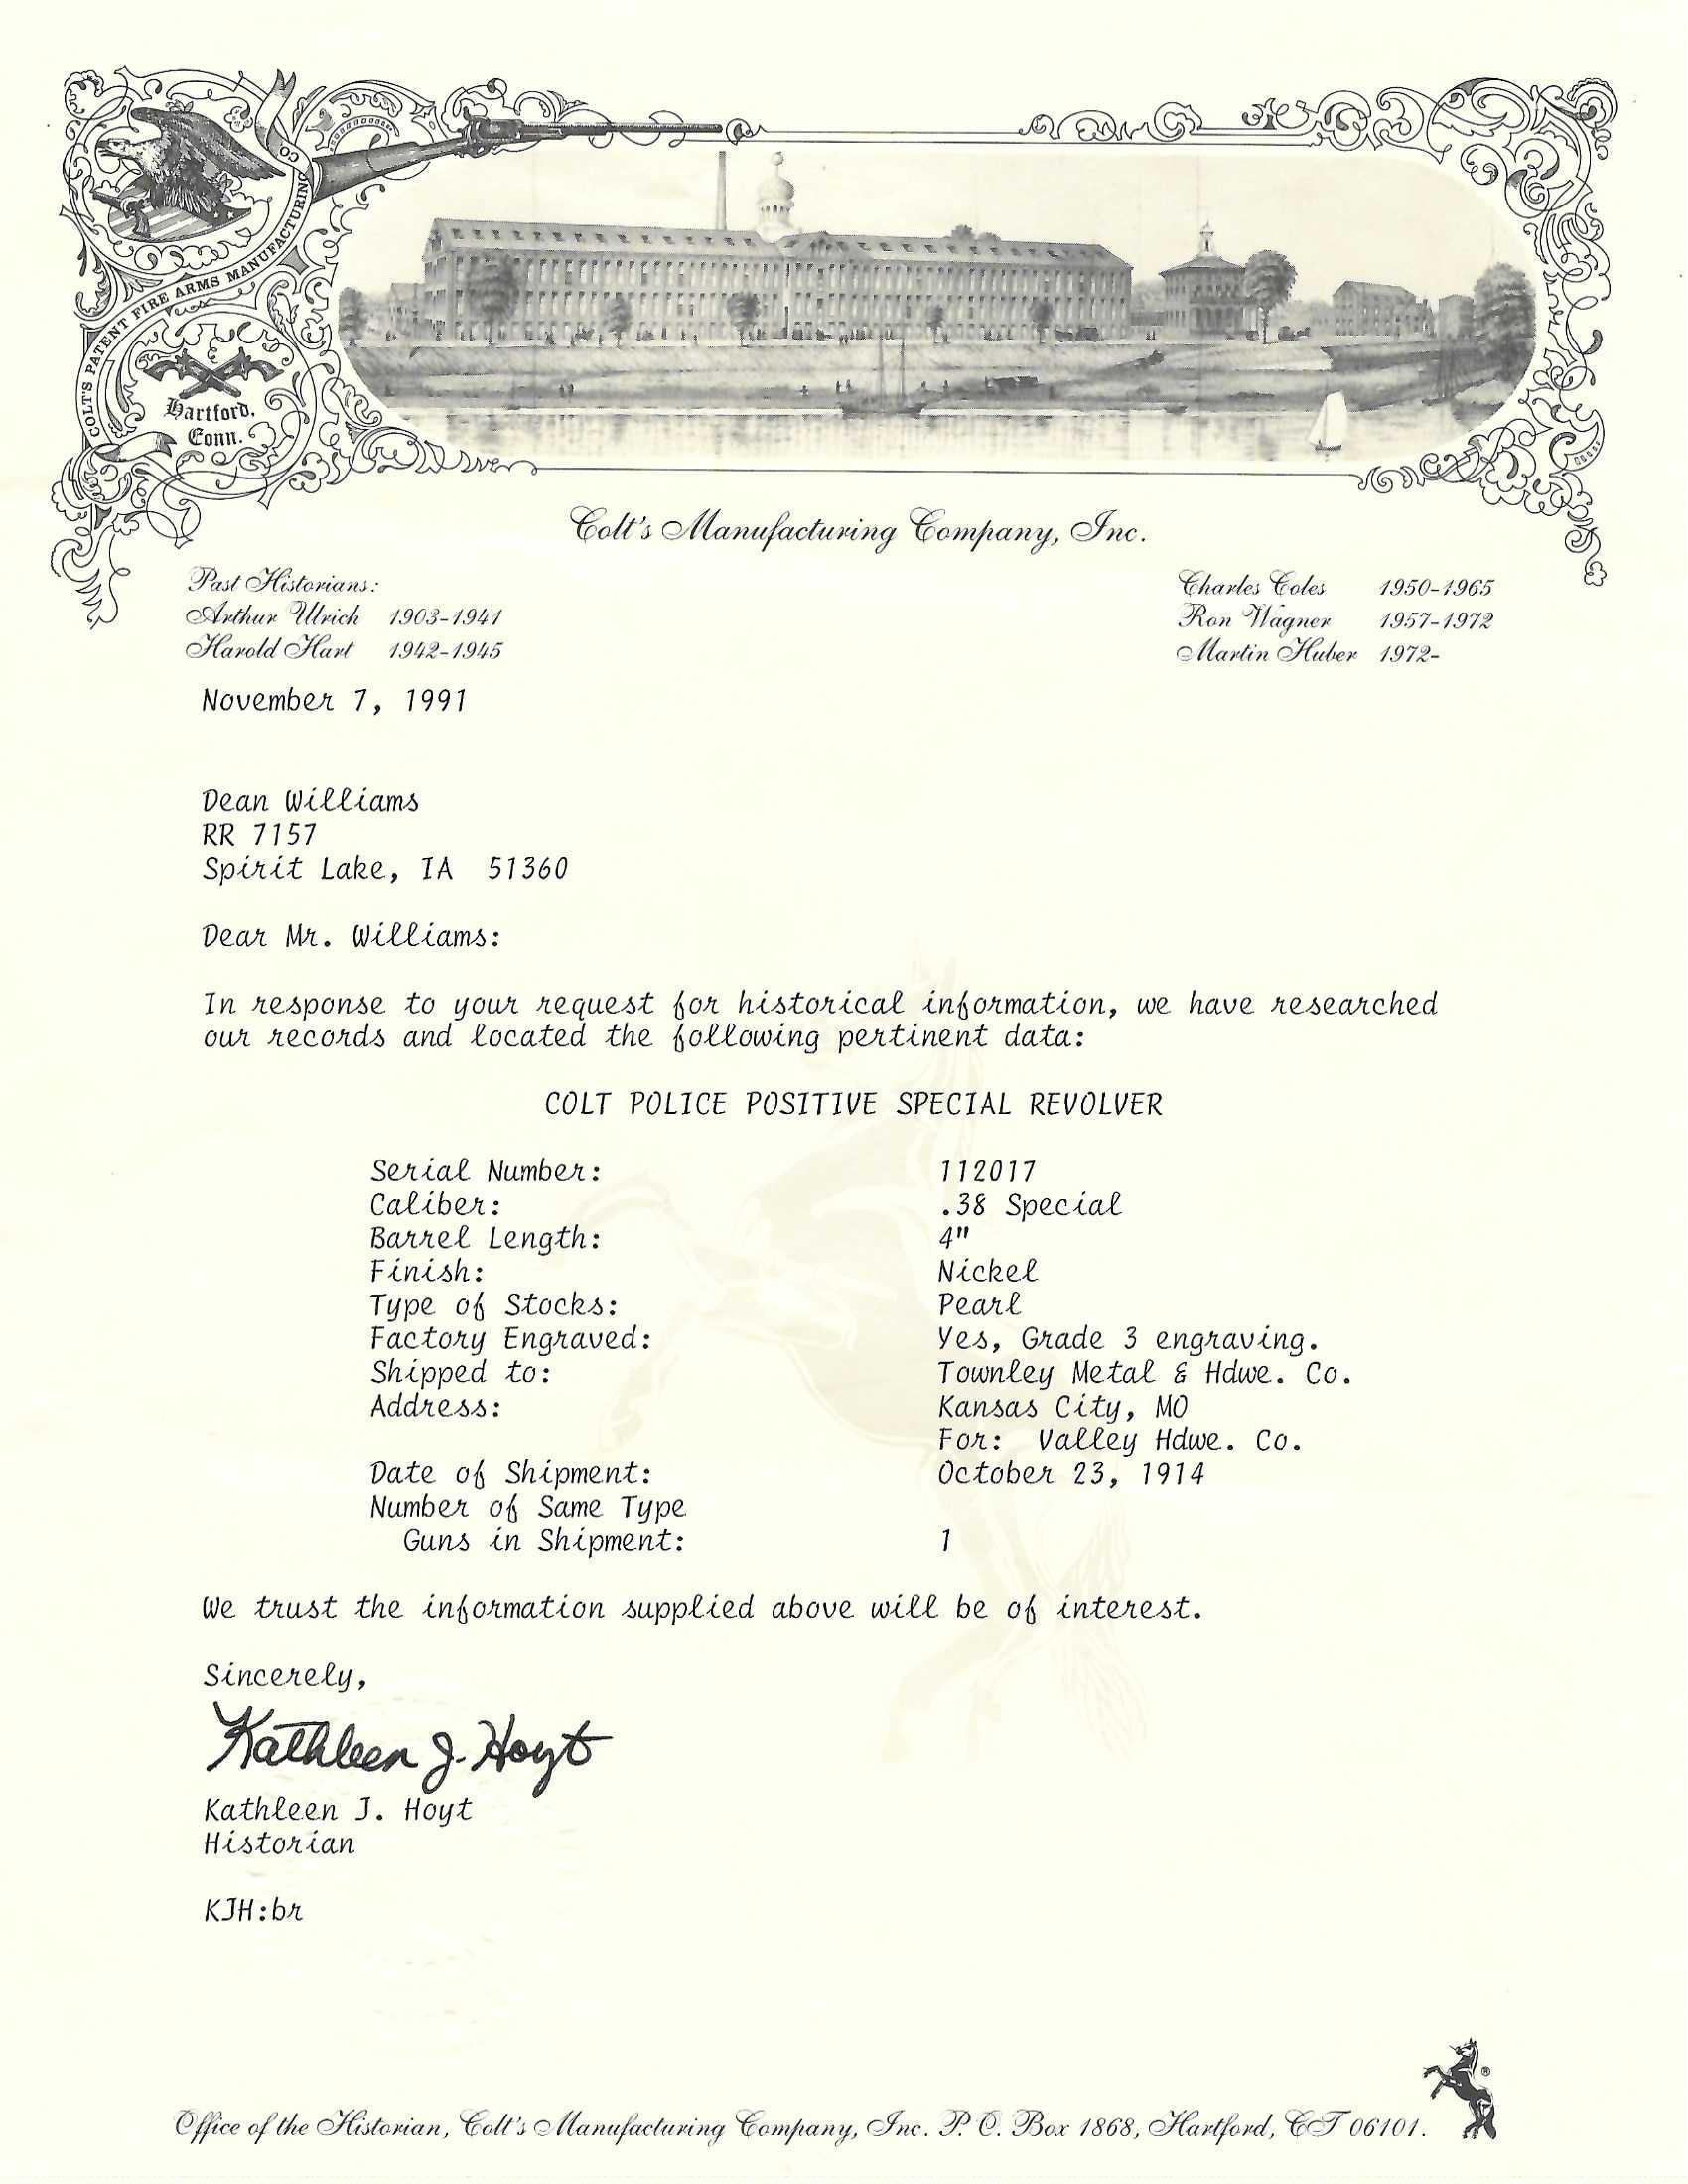 COLT'S PATENT FIRE ARMS MANUFACTURING CO
Hartford,
Conn.
Colt's Manufacturing Company, Inc.
Past Historians:
Arthur Ulrich 1903-1941
Harold Hart 1942-1945
Charles Coles 1950-1965
Ron Wagner 1957-1972
Martin Huber 1972-
November 7, 1991
Dean Williams
RR 7157
Spirit Lake, IA 51360
Dear Mr. Williams:
In response to your request for historical information, we have researched
our records and located the following pertinent data:
COLT POLICE POSITIVE SPECIAL REVOLVER
Serial Number: 112017
Caliber: .38 Special
Barrel Length: 4"
Finish: Nickel
Type of Stocks: Pearl
Factory Engraved: Yes, Grade 3 engraving.
Shipped to: Townley Metal & Hdwe. Co.
Address: Kansas City, MO
For: Valley Hdwe. Co.
Date of Shipment: October 23, 1914
Number of Same Type
Guns in Shipment: 1
We trust the information supplied above will be of interest.
Sincerely,
Kathleen J. Hoyt
Kathleen J. Hoyt
Historian
KJH:br
®
Office of the Historian, Colt's Manufacturing Company, Inc. P. O. Box 1868, Hartford, CT 06101.